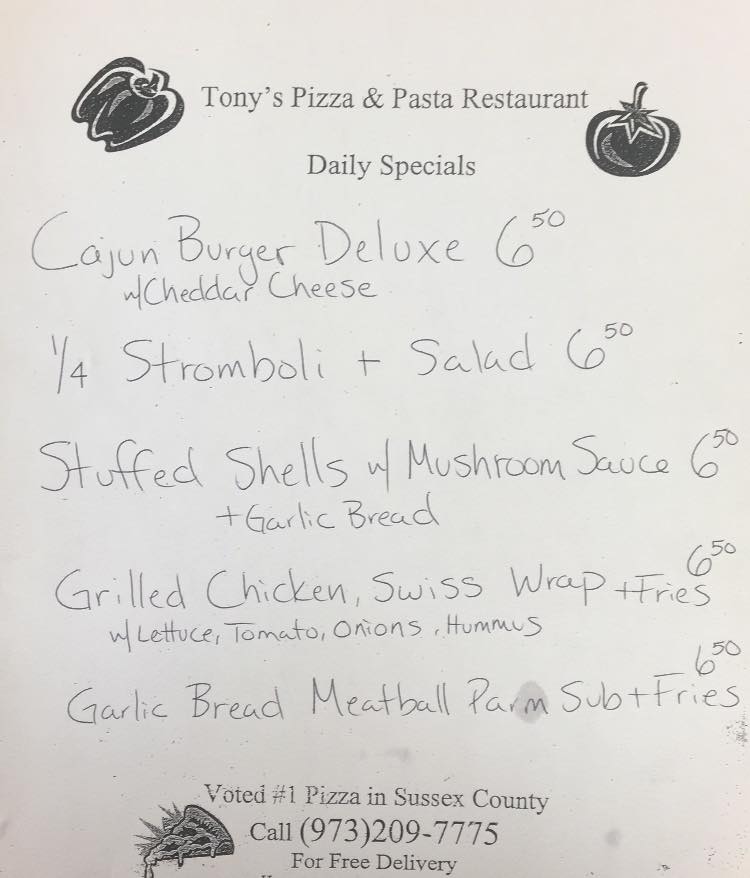 Tony's Pizza & Pasta Restaurant
Daily Specials
Cajun Burger Deluxe 6 50
w/Cheddar Cheese
1/4 Stromboli + Salad 6 50
Stuffed Shells w/ Mushroom Sauce 6 50
+Garlic Bread
Grilled Chicken, Swiss Wrap +Fries 6 50
w/ Lettuce, Tomato, Onions, Hummus
Garlic Bread Meatball Parm Sub+Fries 6 50
Voted #1 Pizza in Sussex County
Call (973)209-7775
For Free Delivery